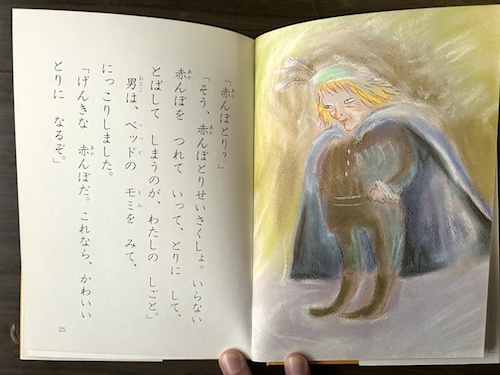 「赤んぼとり？」
「そう、赤んぼとりせいさくしょ。いらない
赤んぼを つれて いって、とりに して、
とばして しまうのが、わたしの しごと。」
男は、ベッドの モミを みて、
にっこりしました。
「げんきな 赤んぼだ。これなら、かわいい
とりに なるぞ。」
25